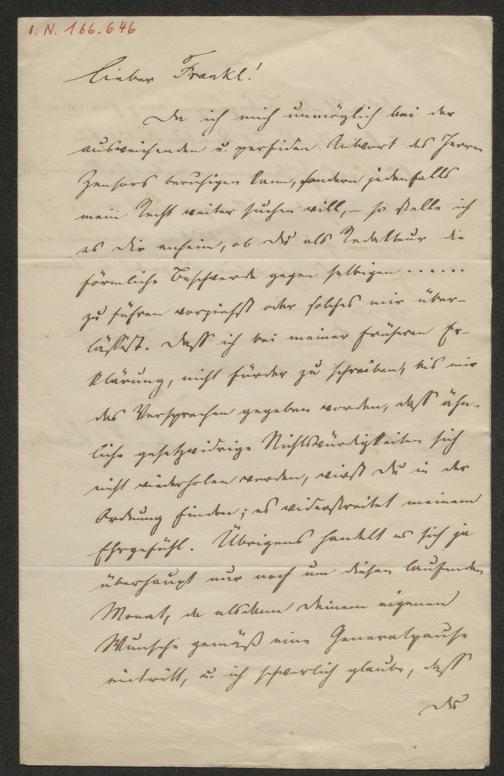 I. N. 166.646
Lieber Frankl!
Da ich mich unmöglich bei der
ausweichenden u. perfiden Antwort des Herrn
Zensors beruhigen kann, sondern jedenfalls
mein Recht weiter suchen will, – so stelle ich
es dir anheim, ob du als Redakteur die
förmliche Beschwerde gegen selbigen ......
zu führen vorziehst oder solches mir über-
lässest. Daß ich bei meiner früheren Er-
klärung, nicht fürder zu schreiben, bis mir
das Versprechen gegeben worden, daß ähn-
liche gesetzwidrige Nichtswürdigkeiten sich
nicht wiederholen werden, wirst du in der
Ordnung finden; es widerstreitet meinem
Ehrgefühl. Übrigens handelt es sich ja
überhaupt nur noch um diesen laufenden
Monat, da alsdann deinem eigenen
Wunsche gemäß eine Generalpause
eintritt, u. ich schwerlich glaube, daß
du